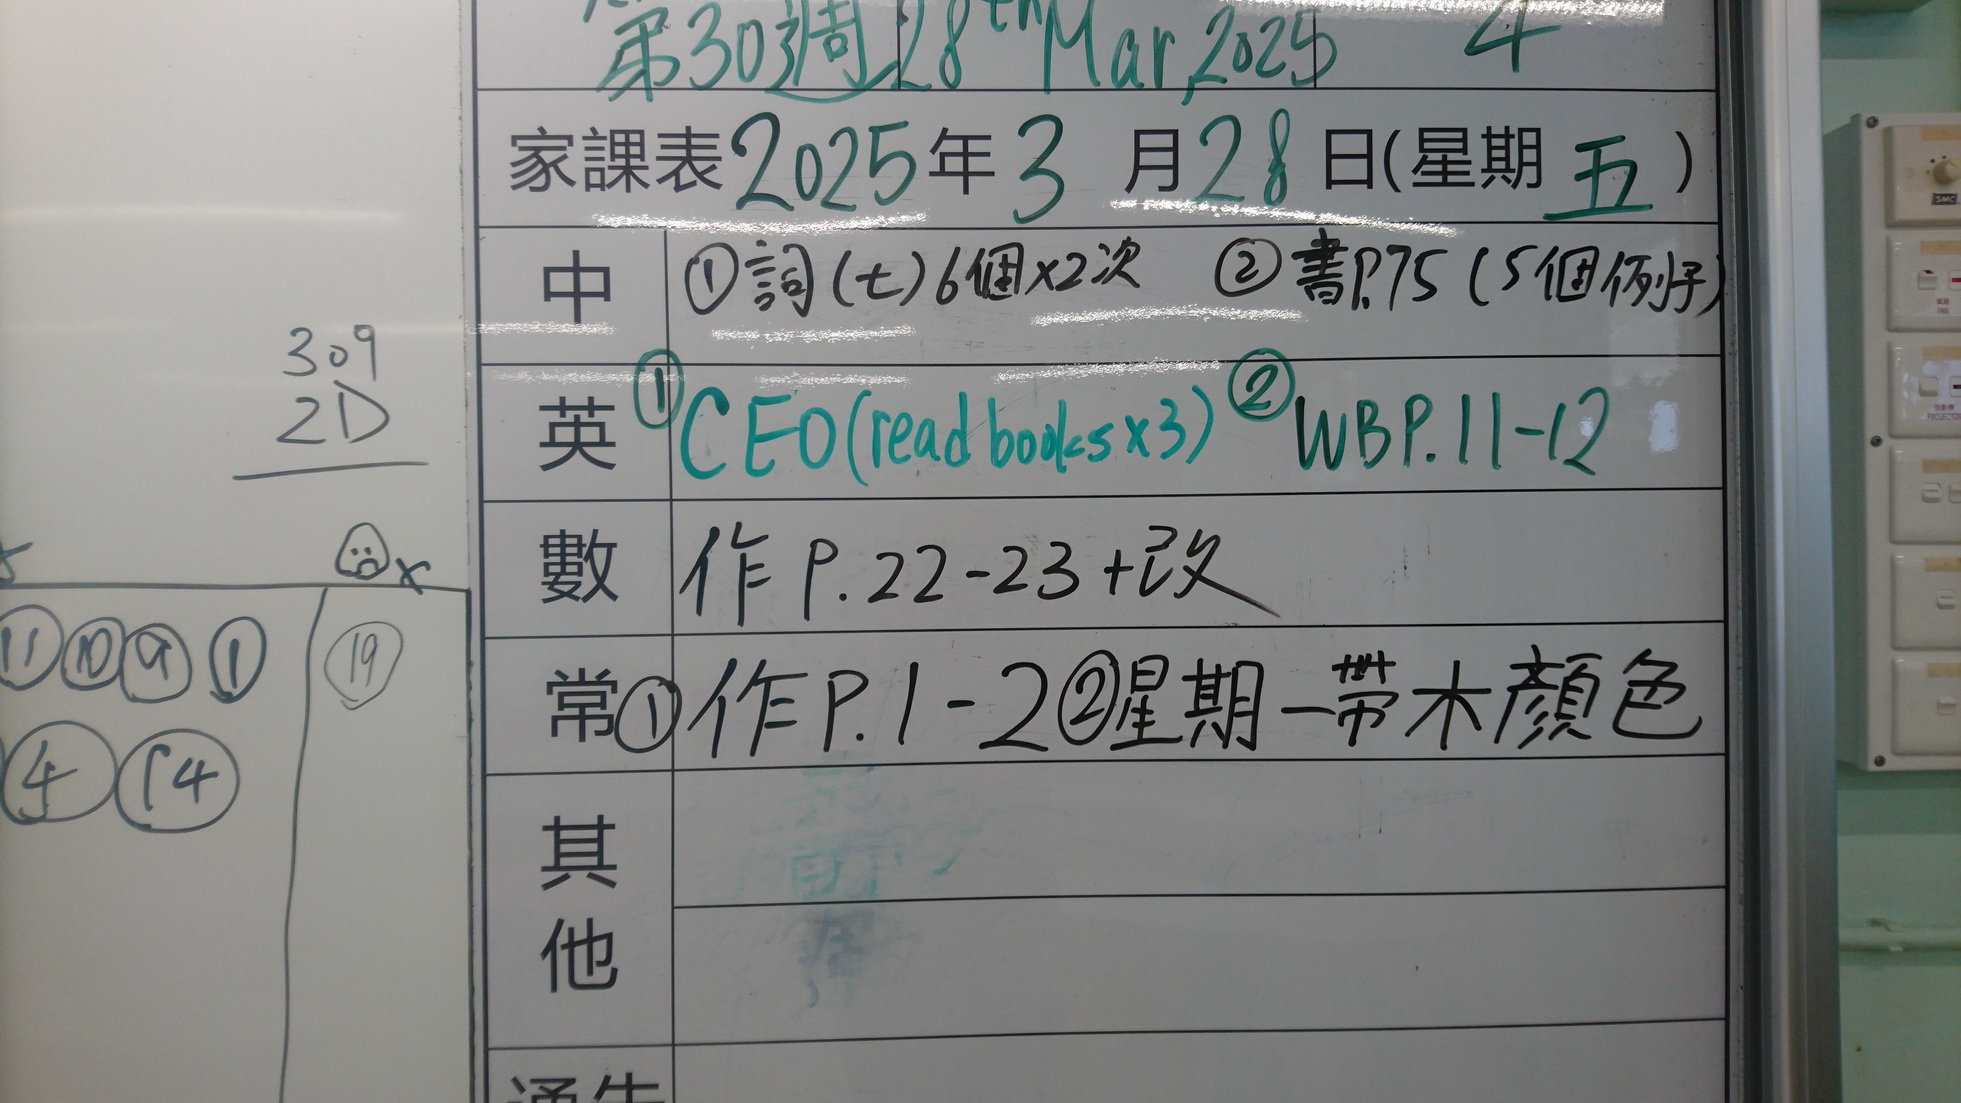 第30週 28th Mar, 2025 4
家課表2025年3月28日(星期五)
中 ①詞(七)6個x2次 ②書P.75(5個例子)
英 ①CEO(read books x3) ②WB P.11-12
數 作 P.22-23+改
常 ①作P.1-2②星期一帶木顏色
其他
通告
309
2D
x
⑪ ⑩ ⑨ ① ⑲
④ ⑭
SMC
FAN
PROJECTOR